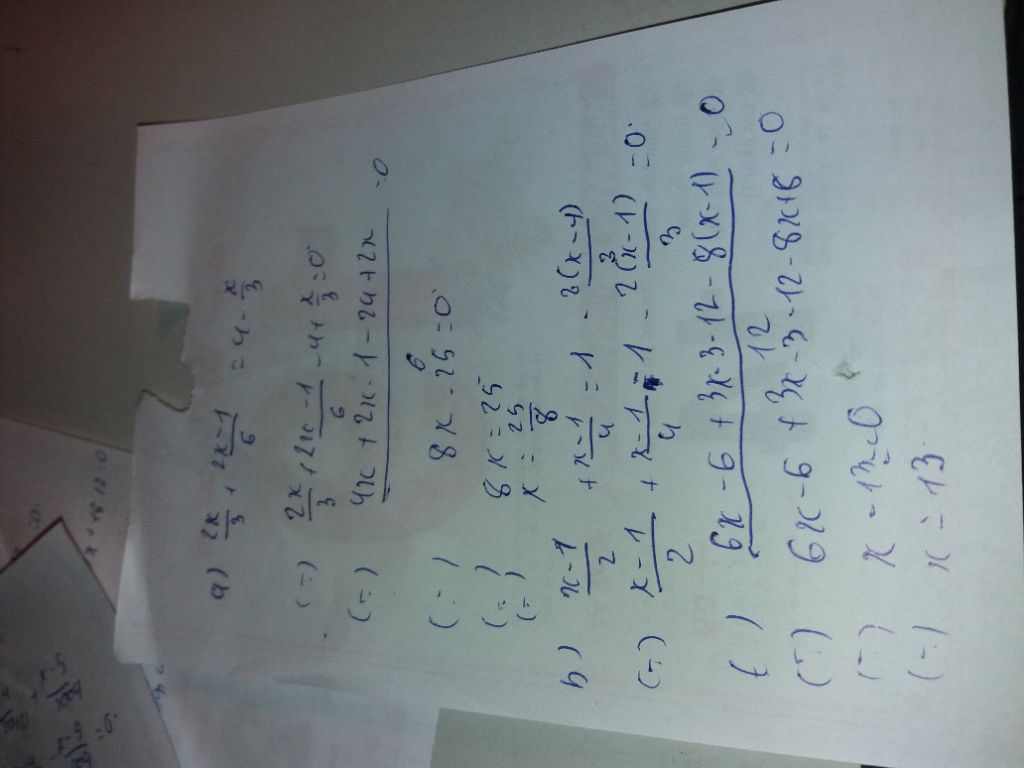 a) 2x/3 + 2x-1/6 = 4 - x/3
(=) 2x/3 + 2x-1/6 - 4 + x/3 = 0
(=) 4x + 2x - 1 - 24 + 2x / 6 = 0
(=) 8x - 25 = 0
(=) 8x = 25
(=) x = 25/8
b) x-1/2 + x-1/4 = 1 -
(=) x-1/2 + x-1/4 - 1 - 2(x-1)/3 = 0
( ) 6x - 6 + 3x - 3 - 12 - 8(x-1) / 12 = 0
(=) 6x - 6 + 3x - 3 - 12 - 8x + 8 = 0
(=) x - 13 = 0
(=) x = 13